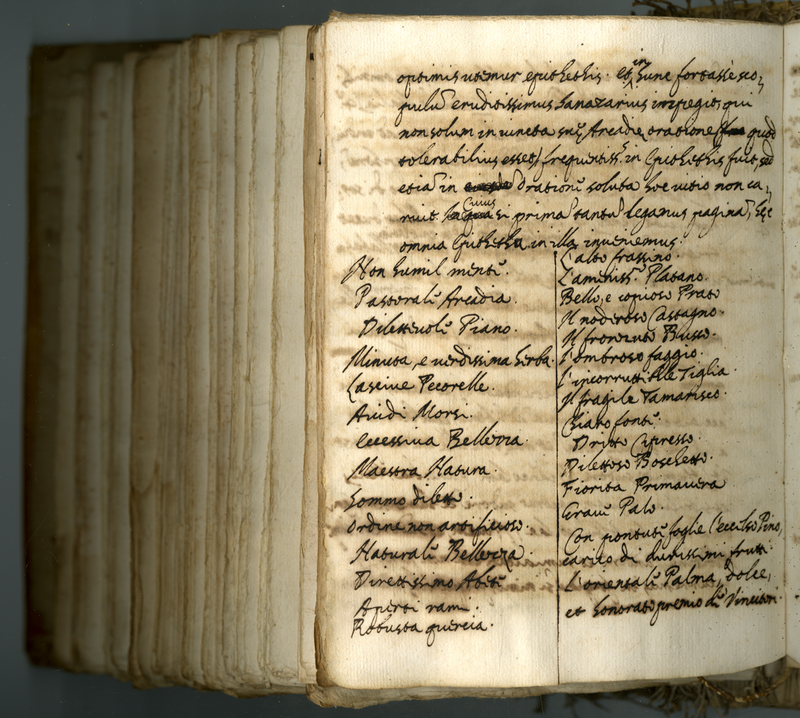 optimis utemur epithethis. et in hunc fortasse sco,
pulū eruditissimus Sanazarius impegit, qui
non solum in vincta suę Arcadię oratione quod
tolerabilius esset) frequentiss. in Epithethis fuit, sed
etiā in orationē soluta hoc vitio non ca,
ruit. cuius si primā tantū legamus paginā, hęc
omnia Epithetha in illa inveniemus.
Non humil mente.
Pastorale Arcadia.
Dilettevole Piano.
Minuta, e verdissima herba.
Lascive Pecorelle.
Avidi Morsi.
eccessiva Bellezza.
Maestra Natura.
Sommo diletto.
Ordine non artificioso.
Naturale Bellezza.
Direttissimo Abete.
Aperti rami.
Robusta quercia.
L'alto frassino.
L'ameniss.º Platano.
Bello, e copioso Prato
Il noderoso Castagno.
Il fronzuto Busso.
L'ombroso faggio.
L'incorruttibile Tiglia.
Il fragile Tamarisco.
Chiaro fonte.
Dritto Cipresso.
Dilettoso Boschetto.
Fiorita Primavera
Grave Palo.
Con pontute foglie l'eccelso Pino,
carico di durissimi frutti.
L'orientale Palma, dolce,
et honorato premio de Vincitori.